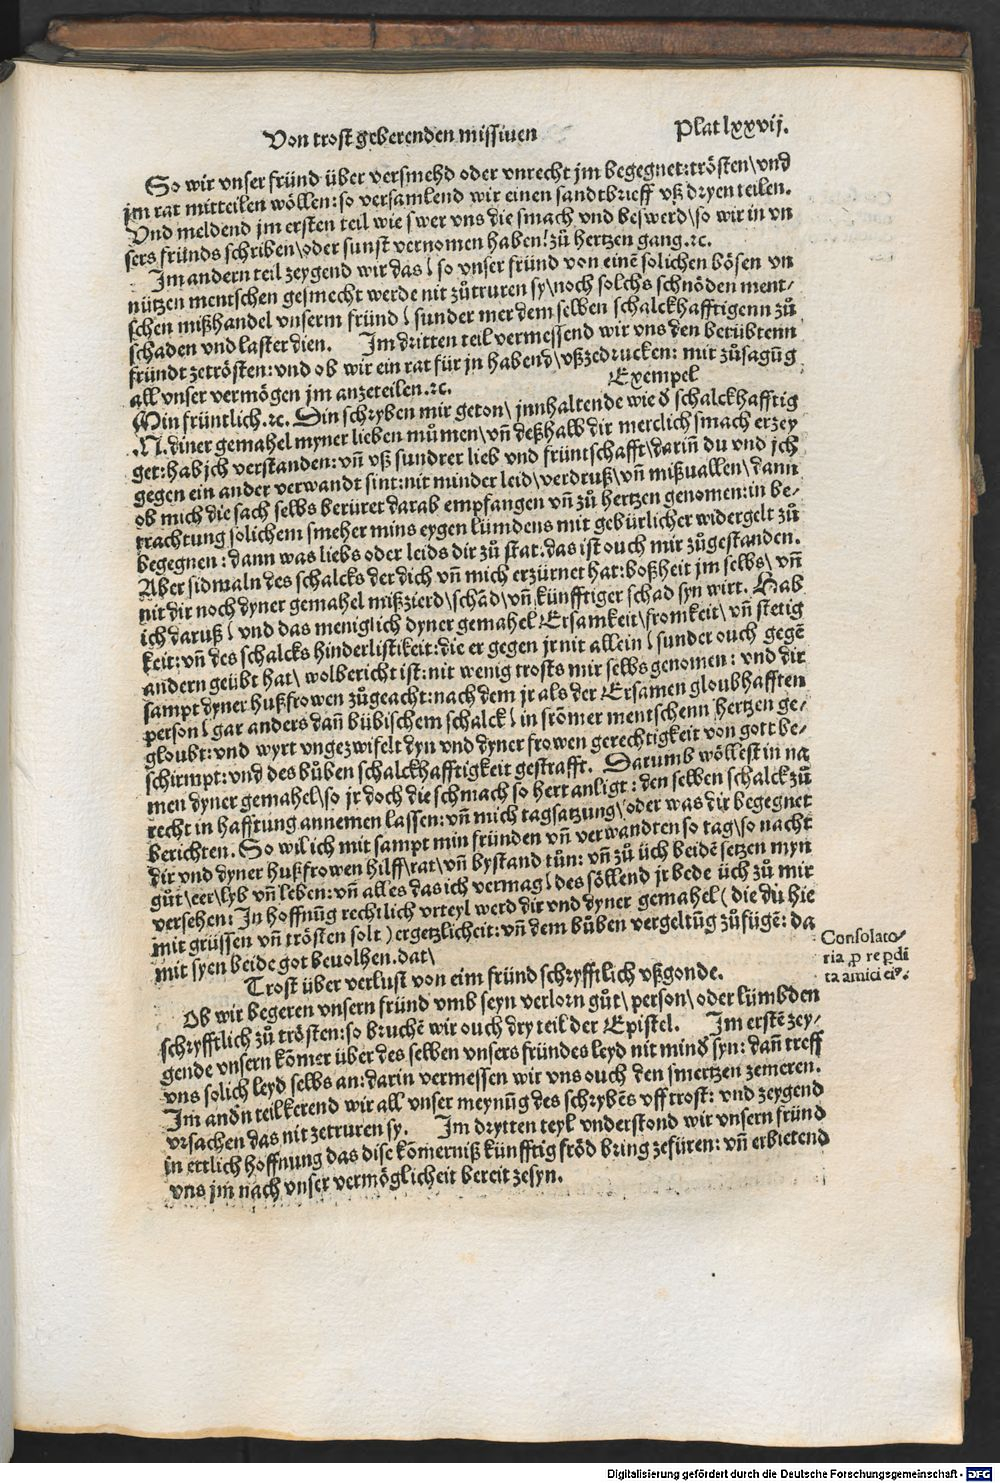 Von trost geberenden missiuen
Plat lxxvij.
So wir vnser fründ über versmehd oder vnrecht jm begegnet: trösten\ vnd
jm rat mitteilen wöllen: so versamlend wir einen sandtbrieff vß dryen teilen.
Vnd meldend jm ersten teil wie swer vns die smach vnd beswerd\ so wir in vn
sers fründs schriben\ oder sunst vernomen haben! zů hertzen gang.ꝛc.
Im andern teil zeygend wir das⟨ so vnser fründ von einē solichen bösen vn
nützen mentschen gesmecht werde nit zůtruren sy\ noch solchs schnöden ment⸗
schen mißhandel vnserm fründ⟨ sunder mer dem selben schalckhafftigenn zů
schaden vnd laster dien. Im dritten teil vermessend wir vns den betrübtenn
fründt zetrösten: vnd ob wir ein rat für jn habend\ vßzedrucken: mit zůsagūg
all vnser vermögen jm anzeteilen.ꝛc. Exempel
Min früntlich.ꝛc. Din schryben mir geton\ jnnhaltende wie d̄ schalckhafftig
.N. diner gemahel myner lieben můmen\ vn̄ deßhalb dir merclich smach erzey
get: hab jch verstanden: vn̄ vß sundrer lieb vnd früntschafft\ darin̄ du vnd jch
gegen ein ander verwandt sint: nit minder leid\ verdruß\ vn̄ mißuallen\ dann
ob mich die sach selbs berüret darab empfangen vn̄ zů hertzen genomen: in be⸗
trachtung solichem smeher mins eygen lümdens mit gebürlicher widergelt zů
begegnen: dann was liebs oder leids dir zů stat: das ist ouch mir zůgestanden.
Aber sidmaln des schalcks der dich vn̄ mich erzürnet hat: boßheit jm selbs\ vn̄
nit dir noch dyner gemahel mißzierd\ schād\ vn̄ künfftiger schad syn wirt. Hab
ich daruß⟨ vnd das meniglich dyner gemahel Ersamkeit\ fromkeit\ vn̄ stetig
keit: vn̄ des schalcks hinderlistikeit: die er gegen jr nit allein⟨ sunder ouch gegē
andern geübt hat\ wolbericht ist: nit wenig trosts mir selbs genomen: vnd dir
sampt dyner hußfrowen zůgeacht: nach dem jr als der Ersamen gloubhafften
person⟨ gar anders dan̄ bübischem schalck⟨ in frōmer mentschenn hertzen ge⸗
gloubt: vnd wyrt vngezwifelt dyn vnd dyner frowen gerechtigkeit von gott be⸗
schirmpt: vnd des bůben schalckhafftigkeit gestrafft. Darumb wöllest in na
men dyner gemahel\ so jr doch die schmach so hert anligt: den selben schalck zů
recht in hafftung annemen lassen: vn̄ mich tagsatzung\ oder was dir begegnet
berichten. So wil ich mit sampt min fründen vn̄ verwandten so tag\ so nacht
dir vnd dyner hußfrowen hilff\ rat\ vn̄ bystand tůn: vn̄ zů üch beidē setzen myn
gůt\ eer\ lyb vn̄ leben: vn̄ alles das ich vermag⟨ des söllend jr bede üch zů mir
versehen: In hoffnūg rechtlich vrteyl werd dir vnd dyner gemahel (die du hie
mit grüssen vn̄ trösten solt) ergetzlicheit: vn̄ dem büben vergeltūg zůfügē: da
mit syen beide got beuolhen. dat\
Consolato⸗
ria ꝓ re ꝑdi
ta amici eiꝰ.
Trost über verlust von eim fründ schryfftlich vßgonde.
Ob wir begeren vnsern fründ vmb seyn verlorn gůt\ person\ oder lümbden
schryfftlich zů trösten: so bruchē wir ouch dry teil der Epistel. Im erstē zey⸗
gende vnsern kōmer über des selben vnsers fründes leyd nit mind̄ syn: dan̄ treff
vns solich leyd selbs an: darin vermessen wir vns ouch den smertzen zemeren.
Im and̄n teil kerend wir all vnser meynūg des schrybēs vff trost: vnd zeygend
vrsachen das nit zetruren sy. Im drytten teyl vnderstond wir vnsern fründ
in ettlich hoffnung das dise kōmerniß künfftig fröd bring zefüren: vn̄ erbietend
vns jm nach vnser vermöglicheit bereit zesyn.
Digitalisierung gefördert durch die Deutsche Forschungsgemeinschaft - DFG